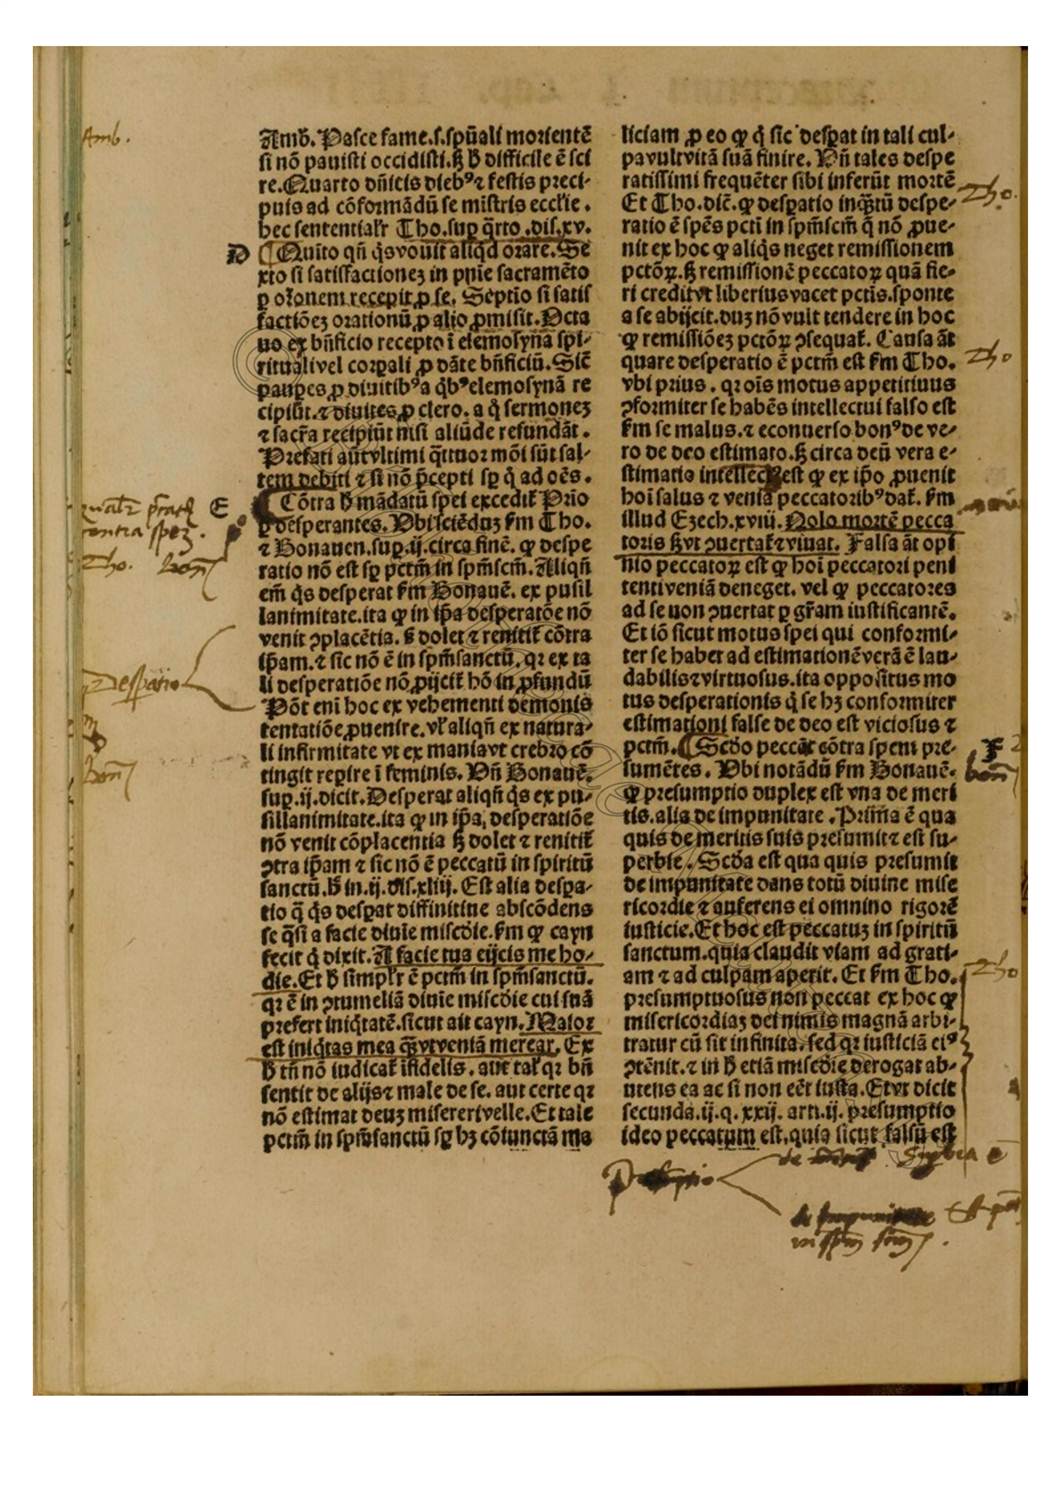 Amb.
Ambr̄. Pasce fame.s.spūali morientē
si nō pauisti occidisti.ꝫ h̄ difficile ē sci
re.Quarto dn̄icis diebꝰ ⁊ festis preci-
puis ad cōformādū se mīstris eccl'ie.
hec sententialr̄ Tho.suꝑ q̄rto.dis.xv.
D
¶ Quīto qn̄ q̇s vouit aliq̇d orare. Se
xto si satisfactioneꝫ in pn̄ie sacramēto
ꝑ or̄onem recepit ꝓ se. Septīo si satis
factiōeꝫ orationū ꝓ alio ꝓmisit. Octa
uo ex bn̄ficio recepto ī elemosynā spi-
rituali vel corꝑali ꝓ dāte bn̄ficiū. Sic̄
pauꝑes ꝓ diuitibꝰ a q̇bꝰ elemosynā re
cipiūt.⁊ diuites ꝓ clero. a q̇ sermoneꝫ
⁊ sacr̄a recipiūt nisi aliūde refundāt.
Prefati aūt vltimi q̄ttuor mōi sūt sal-
tem debiti ⁊ si nō p̄cepti sꝑ q̇ ad oēs.
E
¶ Cōtra h̄ mādatū spei excedūt Prīo
ꝑ desperantes. Vbi sciēduꝫ ẜm Tho.
⁊ Bonauen.suꝑ.ij.circa finē. ꝙ despe
ratio nō est sꝑ pctm̄ in spm̄scm̄. Aliqn̄
em̄ q̇s desperat ẜm Bonauē. ex pusil
lanimitate.ita ꝙ in ip̄a desperatōe nō
venit ↄplacētia. ꝫ dolet ⁊ renitit̄ cōtra
ip̄am.⁊ sic nō ē in spm̄sanctū. qꝛ ex ta
li desperatiōe nō ꝓijcit̄ hō in ꝓfundū
Pōt eni hoc ex vehementi demonis
tentatiōe ꝓuenire. vl' aliqn̄ ex natura-
li infirmitate vt ex mania vt crebro cō
tingit reꝑire ī feminis. Vn̄ Bonauē.
suꝑ.ij.dicit. Desperat aliqn̄ q̇s ex pu-
sillanimitate.ita ꝙ in ip̄a desperatiōe
nō venit cōplacentia ꝫ dolet ⁊ renitit̄
ↄtra ip̄am ⁊ sic nō ē peccatū in spiritū
sanctū.h̄ in.ij.dis.xliij. Est alia despa-
tio q̄ q̇s desꝑat diffinitiue abscōdens
se q̄si a facie diuīe miscd̄ie.ẜm ꝙ cayn
fecit q̇ dixit. A facie tua eijcis me ho-
die. Et h̄ simpl'r ē pctm̄ in spm̄sanctū.
qꝛ ē in ↄtumeliā diuīe miscd̄ie cui suā
prefert iniq̇tatē.sicut ait cayn. Maior
est iniq̇tas mea q̄ȝ vt veniā merear. Ex
h̄ tn̄ nō iudicat̄ īfidelis. aut tal' qꝛ bn̄
sentit de alijs ⁊ male de se. aut certe qꝛ
nō estimat deuꝫ misereri velle. Et tale
pctm̄ in spm̄sanctū sꝑ hꝫ cōiunctā ma
Despatio
Tho.
liciam ꝓ eo ꝙ q̇ sic desꝑat in tali cul-
pa vult vitā suā finire. Vn̄ tales despe
ratissimi frequēter sibi inferūt mortē
Et Tho.dic̄.ꝙ desꝑatio inq̄ȝtū despe-
ratio ē spēs pcti in spm̄scm̄ q̄ nō ꝓue-
nit ex hoc ꝙ aliq̇s neget remissionem
pctōꝝ.ꝫ remissionē peccatoꝝ quā fie-
ri credit vt liberius vacet pctīs.sponte
a se abijcit.duꝫ nō vult tendere in hoc
ꝙ remissiōeꝫ pctōꝝ ↄsequat̄. Causa āt
quare desperatio ē pctm̄ est ẜm Tho.
vbi prius. qꝛ oīs motus appetitiuus
ↄformiter se habēs intellectui falso est
ẜm se malus.⁊ econuerso bonꝰ de ve-
ro de deo estimato.ꝫ circa deū vera e-
stimatio intellectꝰ est ꝙ ex ip̄o ꝓuenit
hoī salus ⁊ venia peccatoribꝰ dat̄. ẜm
illud Ezech.xviij. Nolo mortē pecca
toris ꝫ vt ↄuertat̄ ⁊ viuat. Falsa āt opi
nio peccatoꝝ est ꝙ hoī peccatori peni
tenti veniā deneget. vel ꝙ peccatores
ad se non ↄuertat ꝑ gr̄am iustificantē.
Et iō sicut motus spei qui conformi-
ter se habet ad estimationē verā ē lau-
dabilis ⁊ virtuosus.ita oppositus mo
tus desperationis q̇ se hꝫ conformiter
estimationi false de deo est viciosus ⁊
pctm̄. ¶ Scd̄o peccāt cōtra spem pre-
F
sumētes. Vbi notādū ẜm Bonauē.
ꝙ presumptio duplex est vna de meri
tis.alia de impunitate. Prima ē qua
quis de meritis suis presumit ⁊ est su-
perbie. Scd̄a est qua quis presumit
de impunitate dans totū diuine mise
ricordie ⁊ auferens ei omnino rigorē
iusticie. Et hoc est peccatuꝫ in spiritū
sanctum.quia claudit viam ad grati-
am ⁊ ad culpam aperit. Et ẜm Tho.
presumptuosus non peccat ex hoc ꝙ
misericordiaꝫ dei nimis magnā arbi-
tratur cū sit infinita.sed qꝛ iusticiā eiꝰ
ↄtēnit.⁊ in h̄ etiā miscd̄ie derogat ab-
utens ea ac si non eēt iusta. Et vt dicit
secunda.ij.q.xxij. arti.ij. presumptio
ideo peccatum est.quia sicut falsū est
Tho
Tho
Tho